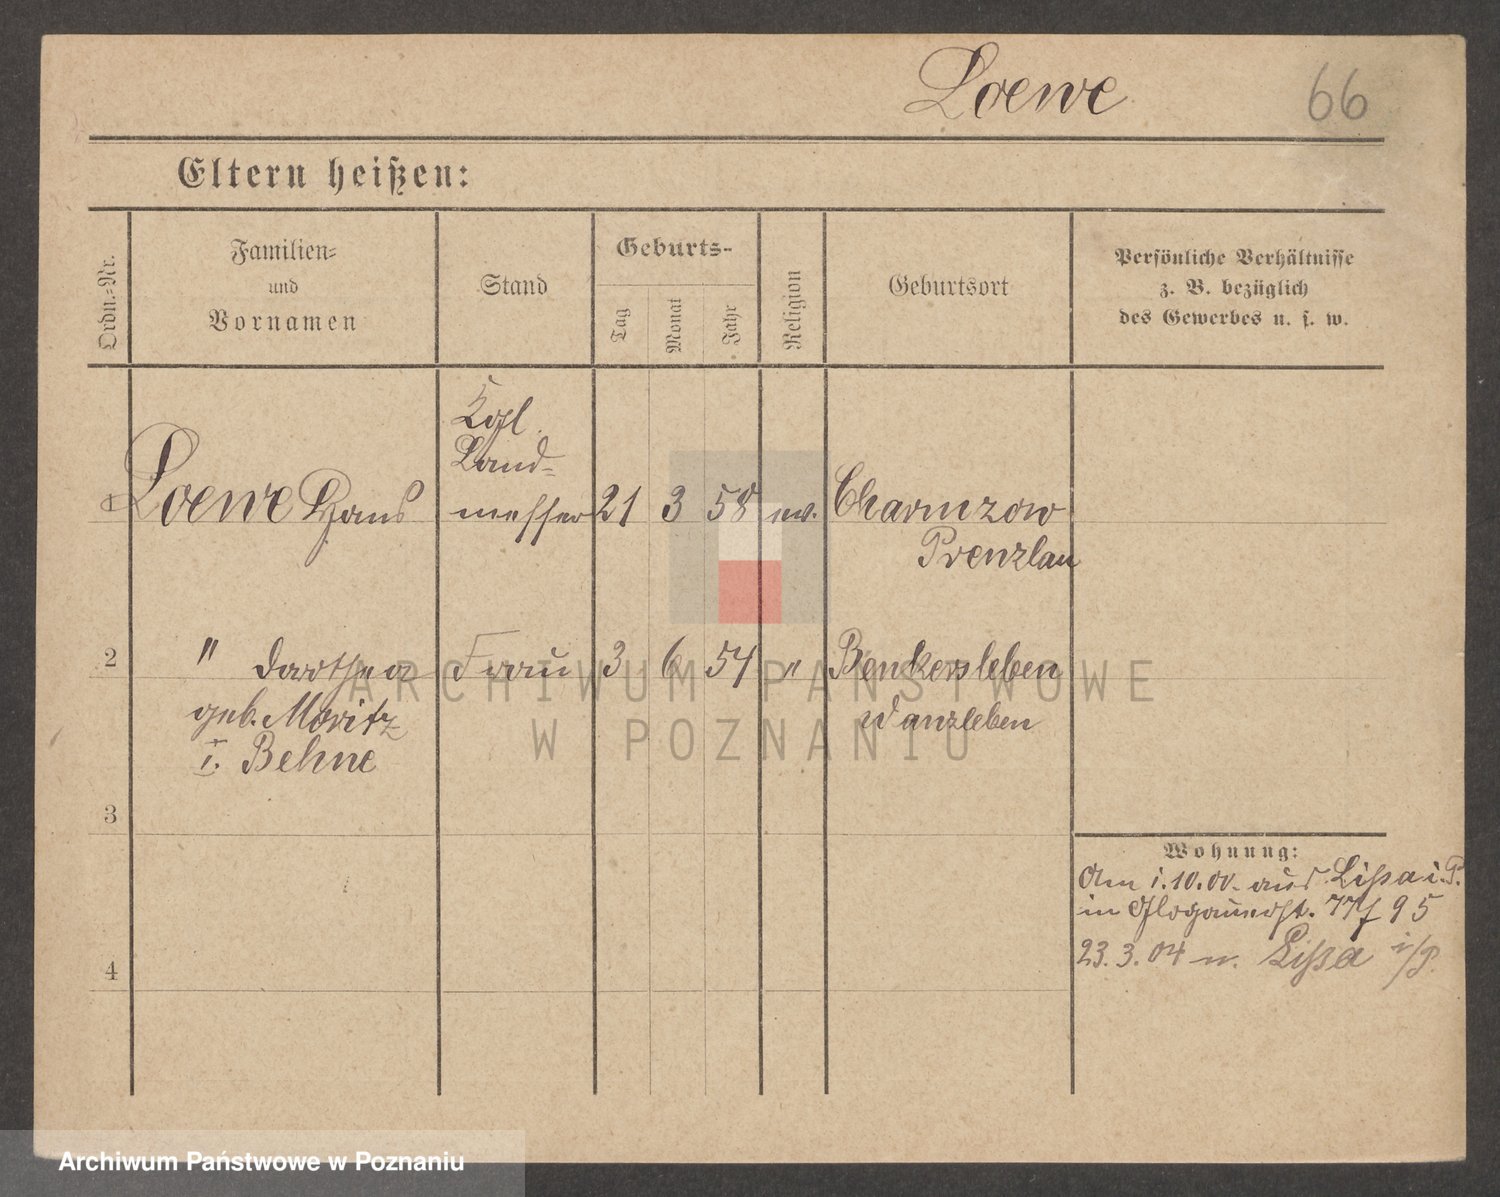 Loewe 66
Eltern heißen:
Ordn.-Nr.
Familien-
und
Vornamen
Stand
Geburts-
Tag
Monat
Jahr
Religion
Geburtsort
Persönliche Verhältnisse
z. B. bezüglich
des Gewerbes u. s. w.
Kgl.
Land-
1 Loewe Hans messer 21 3 58 ev. Charmzow
Prenzlau
2 " Dorthea Frau 3 6 54 " Benkersleben
geb. Moritz Wanzleben
I. Behne
3
Wohnung:
Am 1.10.00. aus Lissa i. P.
in Glogauerst. 77f 95
23.3.04 n. Lissa i/P.
4
ARCHIWUM PAŃSTWOWE
W POZNANIU
Archiwum Państwowe w Poznaniu